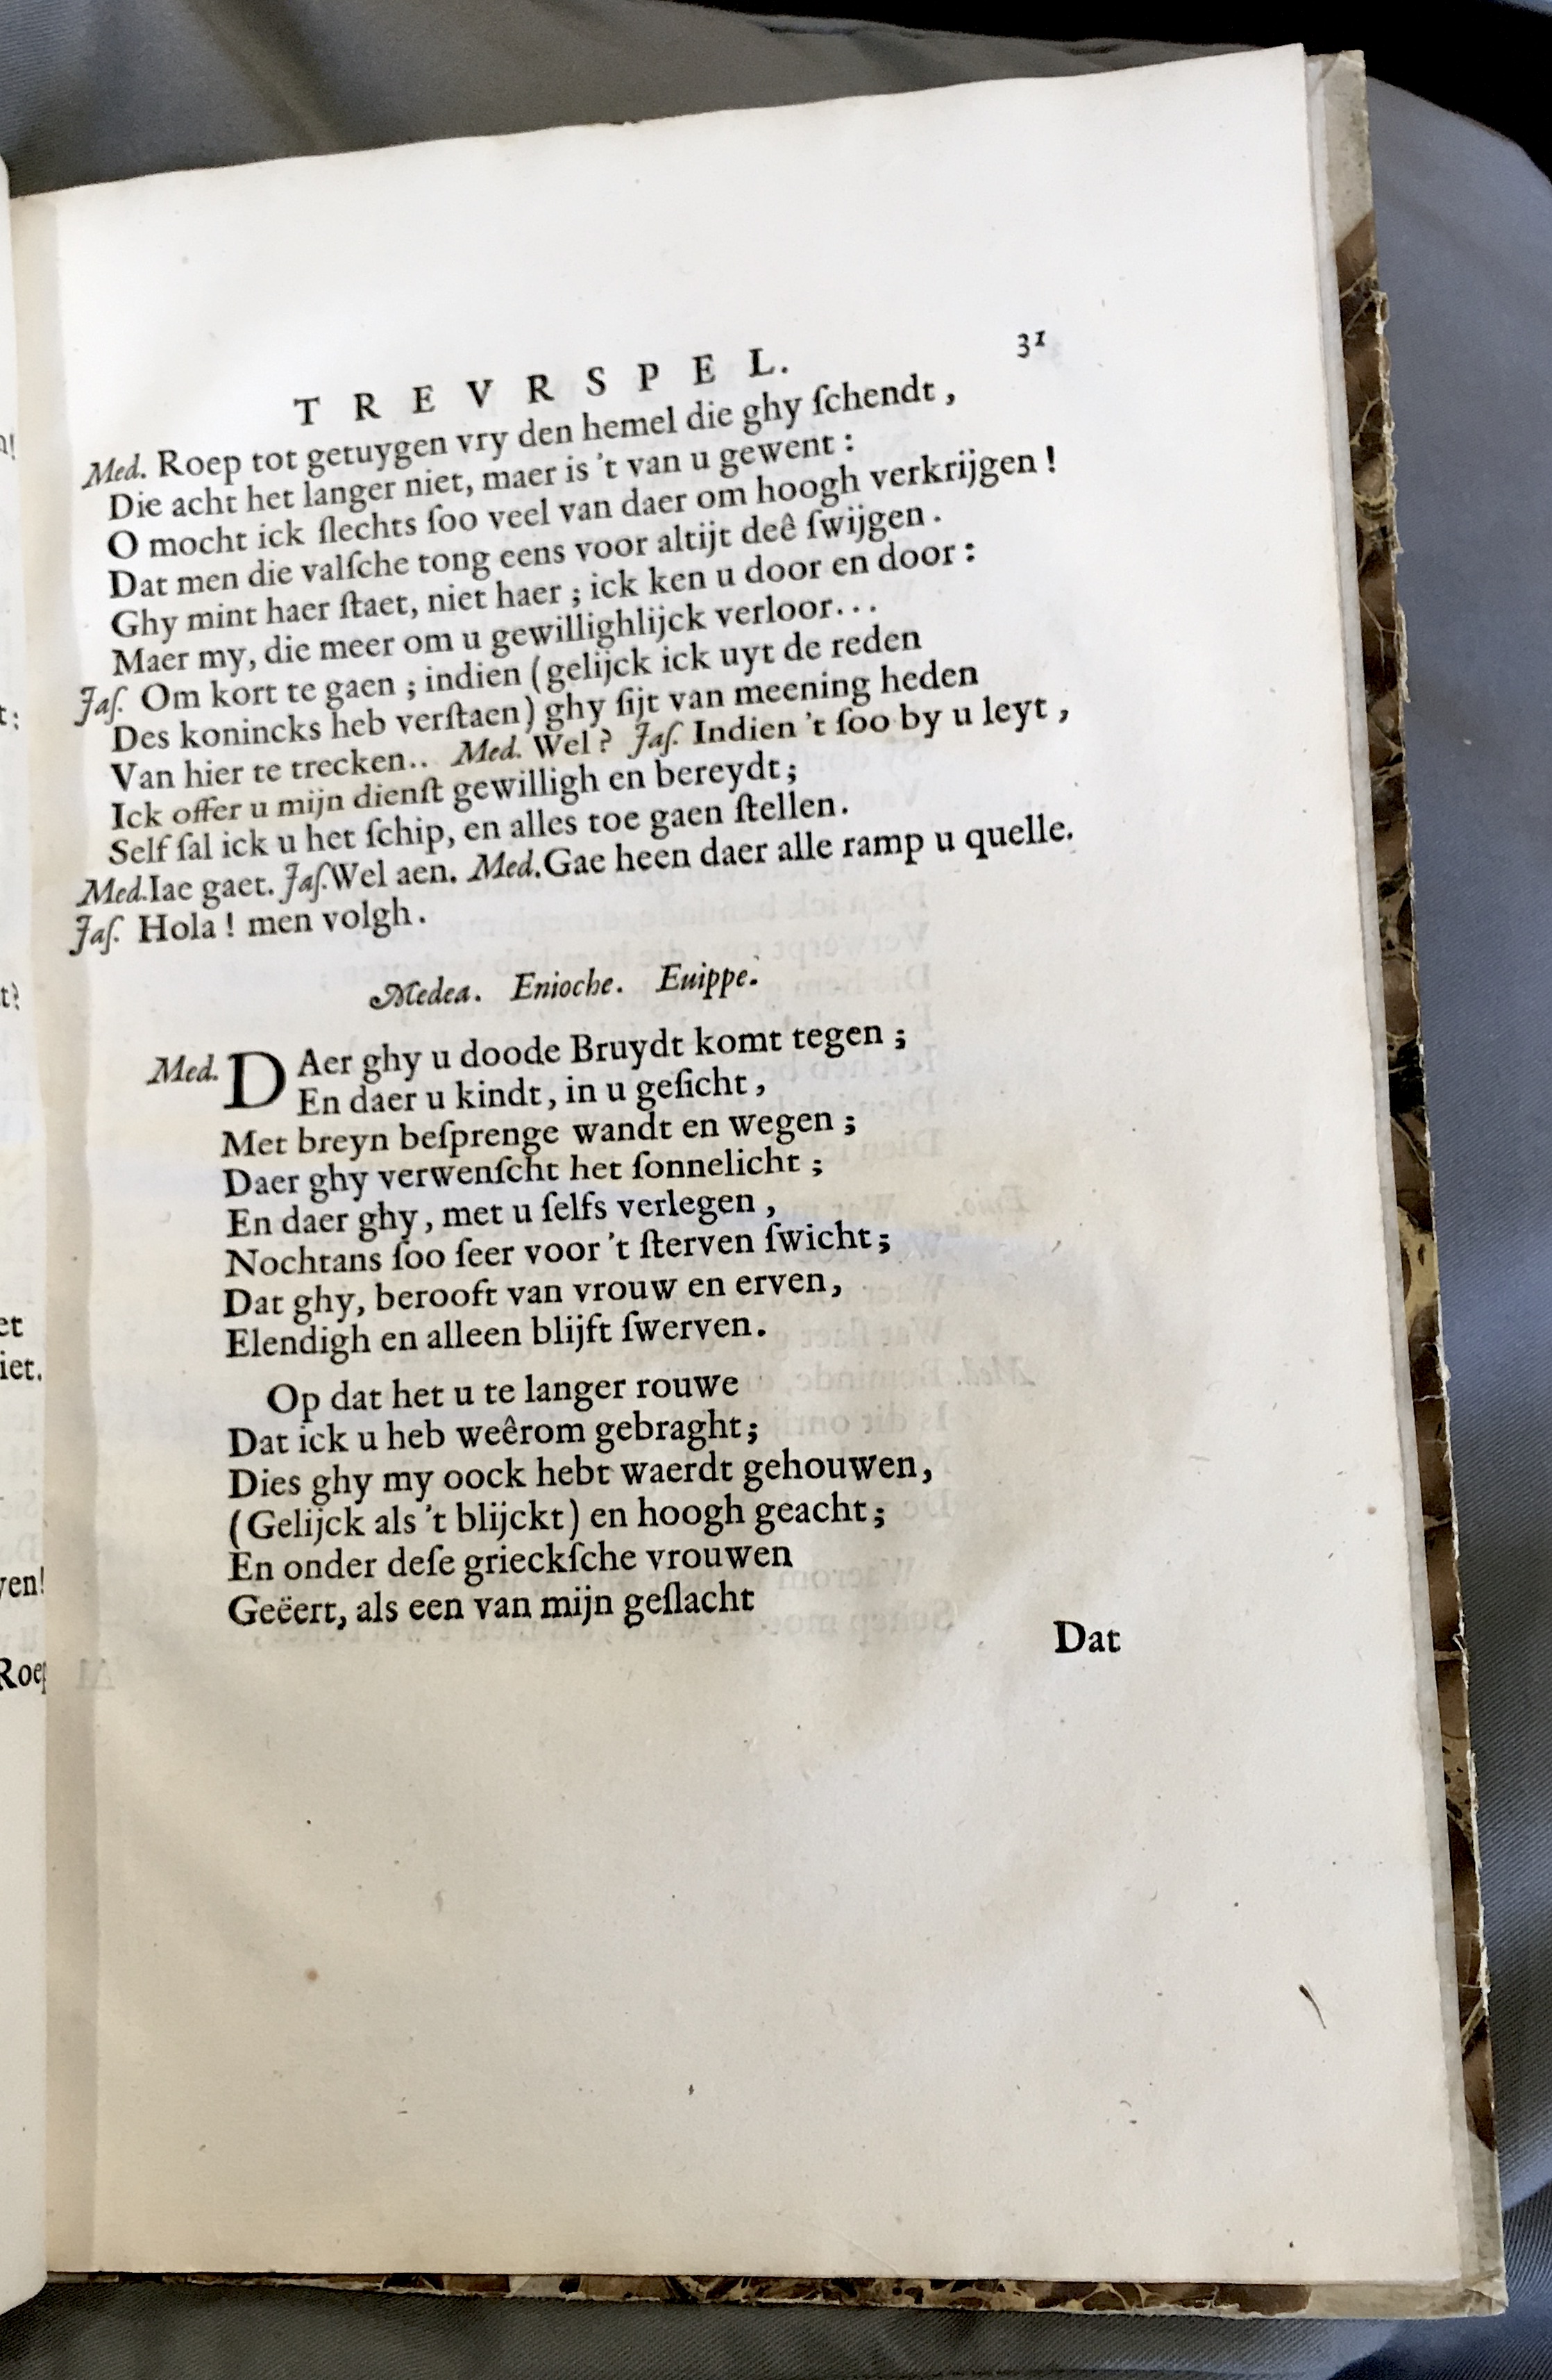 TREVRSPEL. 31
Med. Roep tot getuygen vry den hemel die ghy ſchendt,
Die acht het langer niet, maer is 't van u gewent:
O mocht ick ſlechts ſoo veel van daer om hoogh verkrijgen!
Dat men die valſche tong eens voor altijt deê ſwijgen.
Ghy mint haer ſtaet, niet haer; ick ken u door en door:
Maer my, die meer om u gewillighlijck verloor...
Jaſ. Om kort te gaen; indien (gelijck ick uyt de reden
Des konincks heb verſtaen) ghy ſijt van meening heden
Van hier te trecken.. Med. Wel? Jaſ. Indien 't ſoo by u leyt,
Ick offer u mijn dienſt gewilligh en bereydt;
Self ſal ick u het ſchip, en alles toe gaen ſtellen.
Med. Iae gaet. Jaſ. Wel aen. Med. Gae heen daer alle ramp u quelle.
Jaſ. Hola! men volgh.
Medea. Enioche. Euippe.
Med. DAer ghy u doode Bruydt komt tegen;
En daer u kindt, in u geſicht,
Met breyn beſprenge wandt en wegen;
Daer ghy verwenſcht het ſonnelicht;
En daer ghy, met u ſelfs verlegen,
Nochtans ſoo ſeer voor 't ſterven ſwicht;
Dat ghy, berooft van vrouw en erven,
Elendigh en alleen blijft ſwerven.
Op dat het u te langer rouwe
Dat ick u heb weêrom gebraght;
Dies ghy my oock hebt waerdt gehouwen,
(Gelijck als 't blijckt) en hoogh geacht;
En onder deſe grieckſche vrouwen
Geëert, als een van mijn geſlacht
Dat